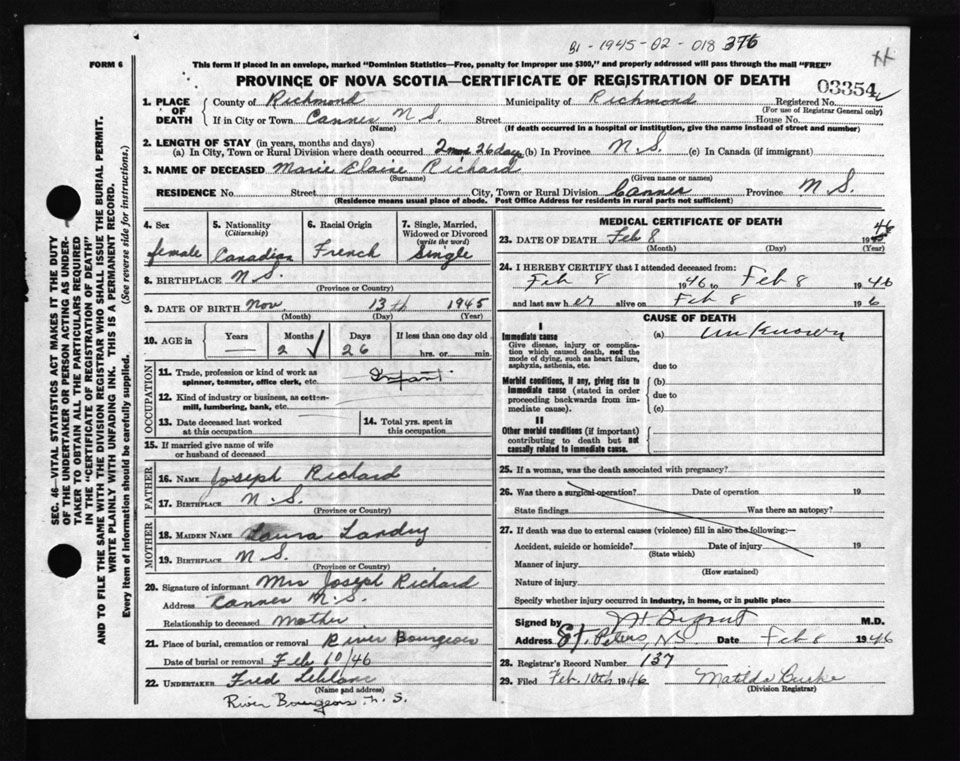 B1-1945-02-018376
FORM 6
This form if placed in an envelope, marked "Dominion Statistics—Free, penalty for improper use $300," and properly addressed will pass through the mail "FREE"
PROVINCE OF NOVA SCOTIA—CERTIFICATE OF REGISTRATION OF DEATH
03354
1. PLACE OF DEATH County of Richmond Municipality of Richmond Registered No.
(For use of Registrar General only)
If in City or Town Cannes N S. Street House No.
(Name) (If death occurred in a hospital or institution, give the name instead of street and number)
2. LENGTH OF STAY (in years, months and days)
(a) In City, Town or Rural Division where death occurred 2 mos 26 days (b) In Province N S. (c) In Canada (if immigrant)
3. NAME OF DECEASED Marie Elaine Richard
(Surname) (Given name or names)
RESIDENCE No. Street City, Town or Rural Division Cannes Province N S.
(Residence means usual place of abode. Post Office Address for residents in rural parts not sufficient)
SEC. 46—VITAL STATISTICS ACT MAKES IT THE DUTY
OF THE UNDERTAKER OR PERSON ACTING AS UNDER-
TAKER TO OBTAIN ALL THE PARTICULARS REQUIRED
IN THE "CERTIFICATE OF REGISTRATION OF DEATH"
AND TO FILE THE SAME WITH THE DIVISION REGISTRAR WHO SHALL ISSUE THE BURIAL PERMIT.
WRITE PLAINLY WITH UNFADING INK. THIS IS A PERMANENT RECORD.
Every item of information should be carefully supplied. (See reverse side for instructions.)
4. Sex 5. Nationality (Citizenship) 6. Racial Origin 7. Single, Married, Widowed or Divorced (write the word)
female Canadian French Single
8. BIRTHPLACE N S.
(Province or Country)
9. DATE OF BIRTH Nov. 13th 1945
(Month) (Day) (Year)
10. AGE in Years Months Days If less than one day old
— 2 26 hrs. or min.
OCCUPATION
11. Trade, profession or kind of work as spinner, teamster, office clerk, etc. Infant
12. Kind of industry or business, as cotton-mill, lumbering, bank, etc.
13. Date deceased last worked at this occupation
14. Total yrs. spent in this occupation
15. If married give name of wife or husband of deceased
FATHER
16. NAME Joseph Richard
17. BIRTHPLACE N S.
(Province or Country)
MOTHER
18. MAIDEN NAME Laura Landry
19. BIRTHPLACE N S.
(Province or Country)
20. Signature of informant Mrs Joseph Richard
Address Cannes N.S.
Relationship to deceased Mother
21. Place of burial, cremation or removal River Bourgeois
Date of burial or removal Feb 10/46
22. UNDERTAKER Fred Leblanc
(Name and address)
River Bourgeois N. S.
MEDICAL CERTIFICATE OF DEATH
23. DATE OF DEATH Feb 8 1946
(Month) (Day) (Year)
24. I HEREBY CERTIFY that I attended deceased from:
Feb 8 1946 to Feb 8 1946
and last saw her alive on Feb 8 1946
CAUSE OF DEATH
I
Immediate cause
Give disease, injury or complication which caused death, not the mode of dying, such as heart failure, asphyxia, asthenia, etc.
(a) Unknown
due to
Morbid conditions, if any, giving rise to immediate cause (stated in order proceeding backwards from immediate cause).
(b)
due to
(c)
II
Other morbid conditions (if important) contributing to death but not causally related to immediate cause.
25. If a woman, was the death associated with pregnancy?
26. Was there a surgical operation? Date of operation 19
State findings Was there an autopsy?
27. If death was due to external causes (violence) fill in also the following:—
Accident, suicide or homicide? Date of injury 19
(State which)
Manner of injury
(How sustained)
Nature of injury
Specify whether injury occurred in industry, in home, or in public place
Signed by M.D.
Address St. Peters, NS Date Feb 8 1946
28. Registrar's Record Number 137
29. Filed Feb. 10th 1946 Matilda Burke
(Division Registrar)